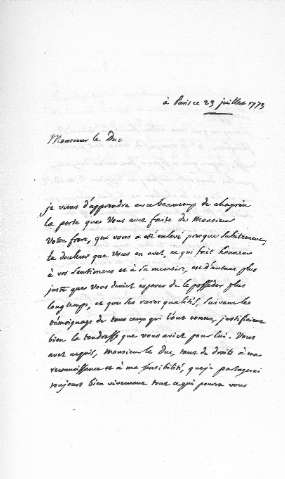 à Paris ce 23 juillet 1773
Monsieur le Duc
je viens d'apprendre avec beaucoup de chagrin
la perte que vous avez faite de Monsieur
votre frere, qui vous a été enlevé presque subitement,
la douleur que vous en avez, ce qui fait honneur
à vos sentimens et à sa memoire, est d'autant plus
juste que vous deviez esperer de le posséder plus
longtemps, et que les rares qualités, suivant le
témoignage de tous ceux qui l'ont connu, justifioient
bien la tendresse que vous aviez pour lui. Vous
avez acquis, Monsieur le Duc, tant de droits à ma
reconnoissance et à ma sensibilité, que je partagerai
toujours bien vivement tout ce qui pourra vous